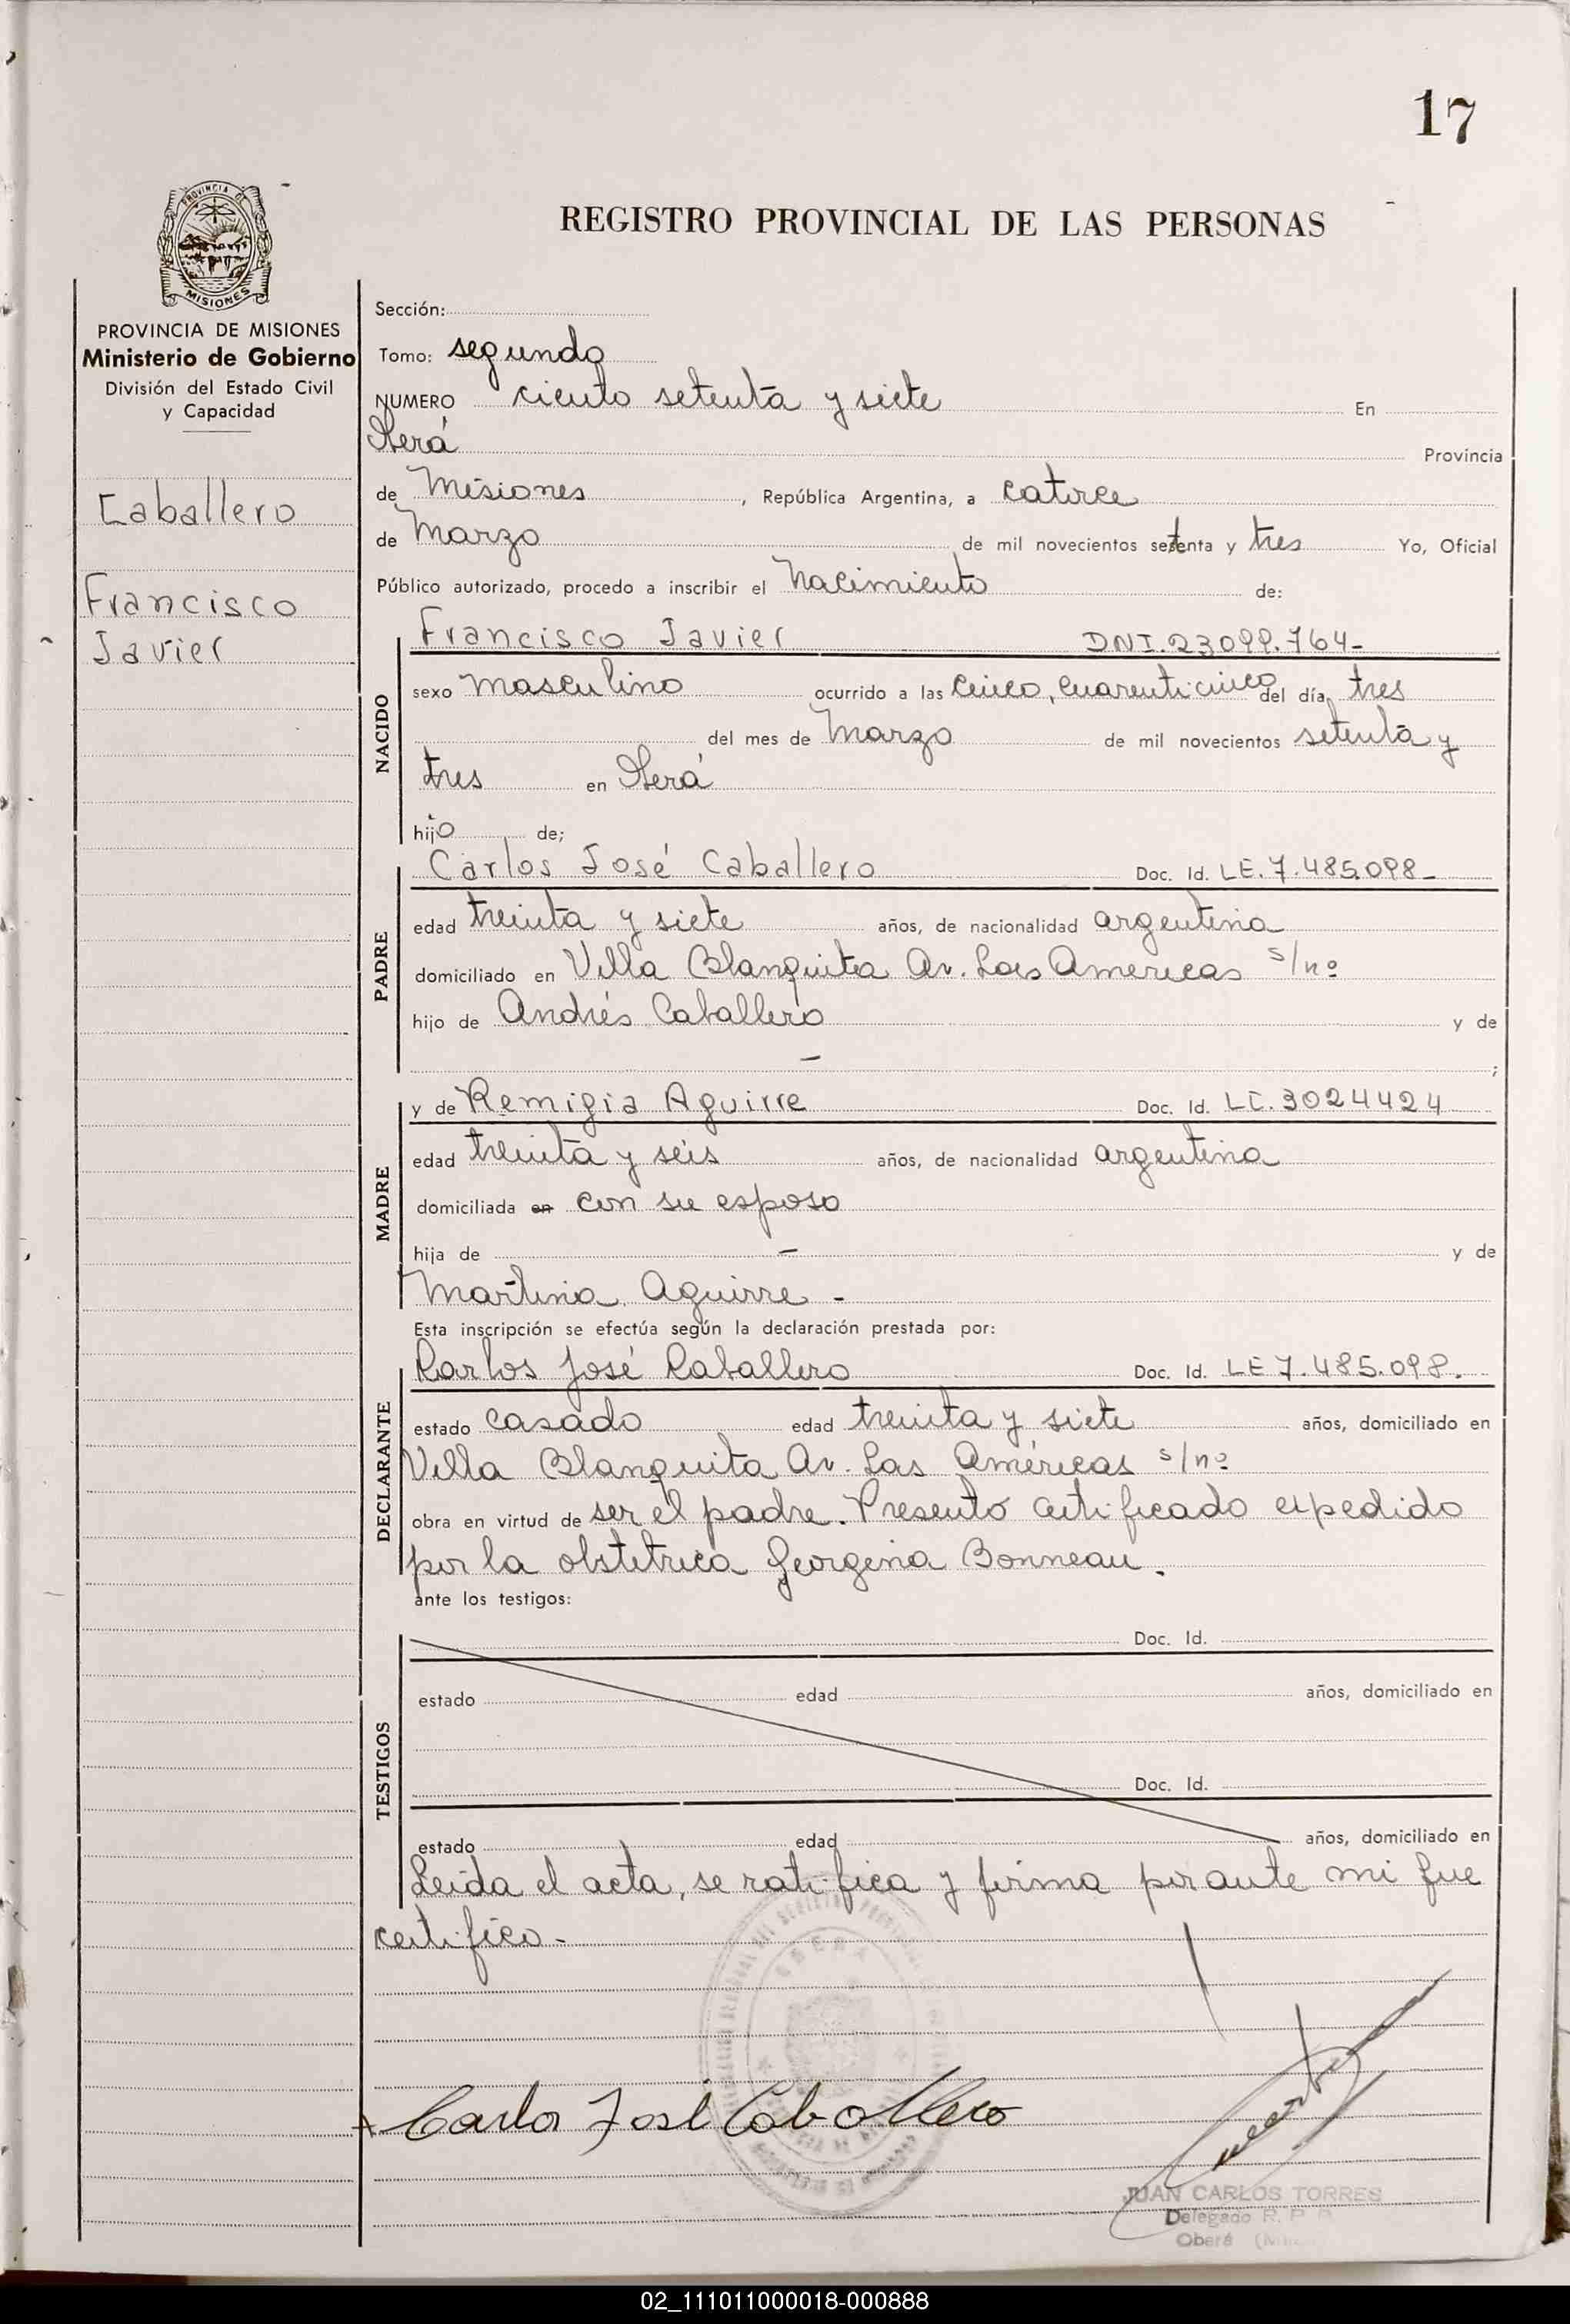 17
PROVINCIA DE
MISIONES
REGISTRO PROVINCIAL DE LAS PERSONAS
PROVINCIA DE MISIONES
Ministerio de Gobierno
División del Estado Civil
y Capacidad
Caballero
Francisco
Javier
Sección:
Tomo: segundo
NUMERO ciento setenta y siete En
Oberá Provincia
de Misiones, República Argentina, a catorce
de Marzo de mil novecientos setenta y tres Yo, Oficial
Público autorizado, procedo a inscribir el Nacimiento de:
NACIDO
Francisco Javier DNI.23099.764-
sexo masculino ocurrido a las cinco, cuarenticinco del día tres
del mes de Marzo de mil novecientos setenta y
tres en Oberá
hijo de;
PADRE
Carlos José Caballero Doc. Id. LE.7.485.098-
edad treinta y siete años, de nacionalidad argentina
domiciliado en Villa Blanquita Av. Las Americas s/nº
hijo de Andrés Caballero y de
- ;
MADRE
y de Remigia Aguirre Doc. Id. LC.3024424
edad treinta y seis años, de nacionalidad argentina
domiciliada en con su esposo
hija de - y de
Martina Aguirre -
Esta inscripción se efectúa según la declaración prestada por:
DECLARANTE
Carlos José Caballero Doc. Id. LE 7.485.098.
estado casado edad treinta y siete años, domiciliado en
Villa Blanquita Av. Las Américas s/nº
obra en virtud de ser el padre. Presentó certificado expedido
por la obstetrica Georgina Bonneau.
ante los testigos:
TESTIGOS
Doc. Id.
estado edad años, domiciliado en
Doc. Id.
estado edad años, domiciliado en
Leida el acta, se ratifica y firma por ante mi que
certifico-
Carlos José Caballero
JUAN CARLOS TORRES
Delegado R. P. P.
Oberá
02_111011000018-000888